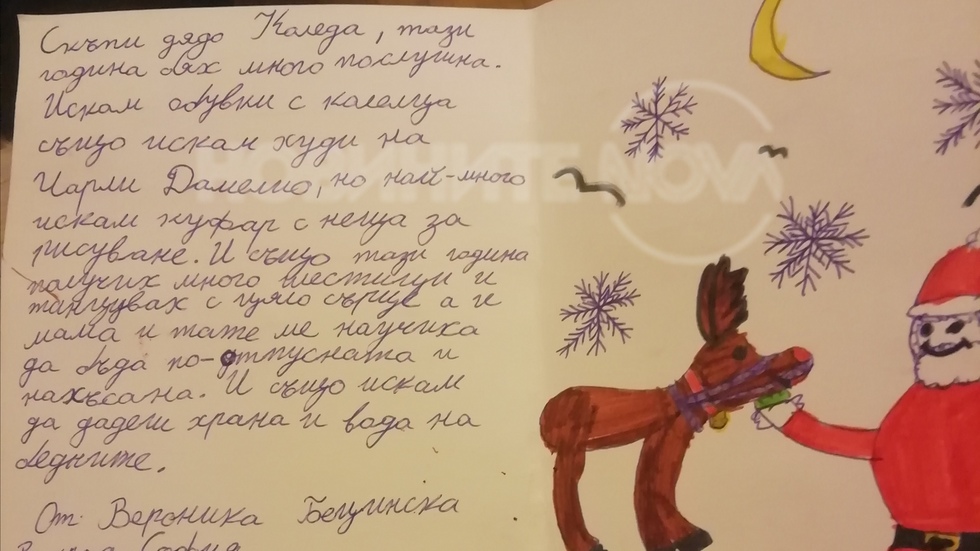 Скъпи дядо Коледа, тази
година бях много послушна.
Искам обувки с колелца
също искам худи на
Чарли Дамелио, но най-много
искам куфар с неща за
рисуване. И също тази година
получих много шестици и
танцувах с цяло сърце а и
мама и тате ме научиха
да бъда по-отпусната и
нахъсана. И също искам
да дадеш храна и вода на
бедните.
От Вероника Бецинска
София
НОВИНИТЕ NOVA